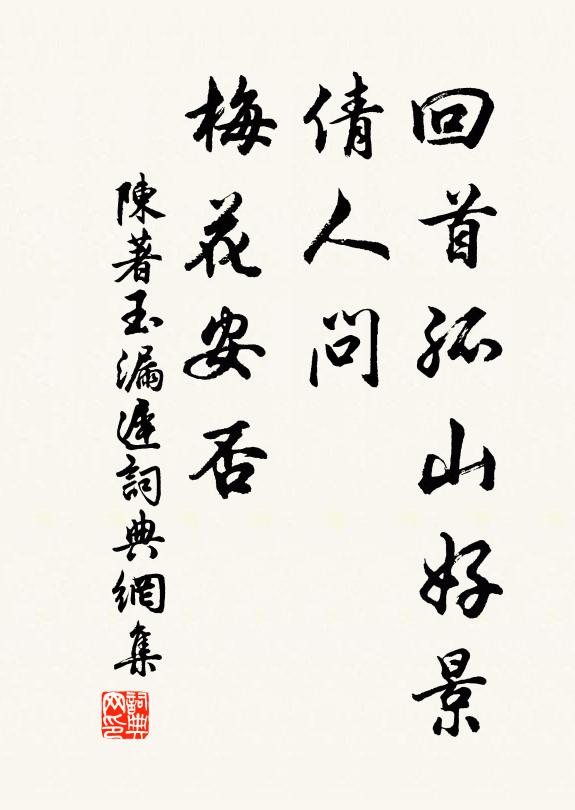 回首孤山好景
倩人問
梅花安否
陳著玉漏遲詞典網集
詞典网印